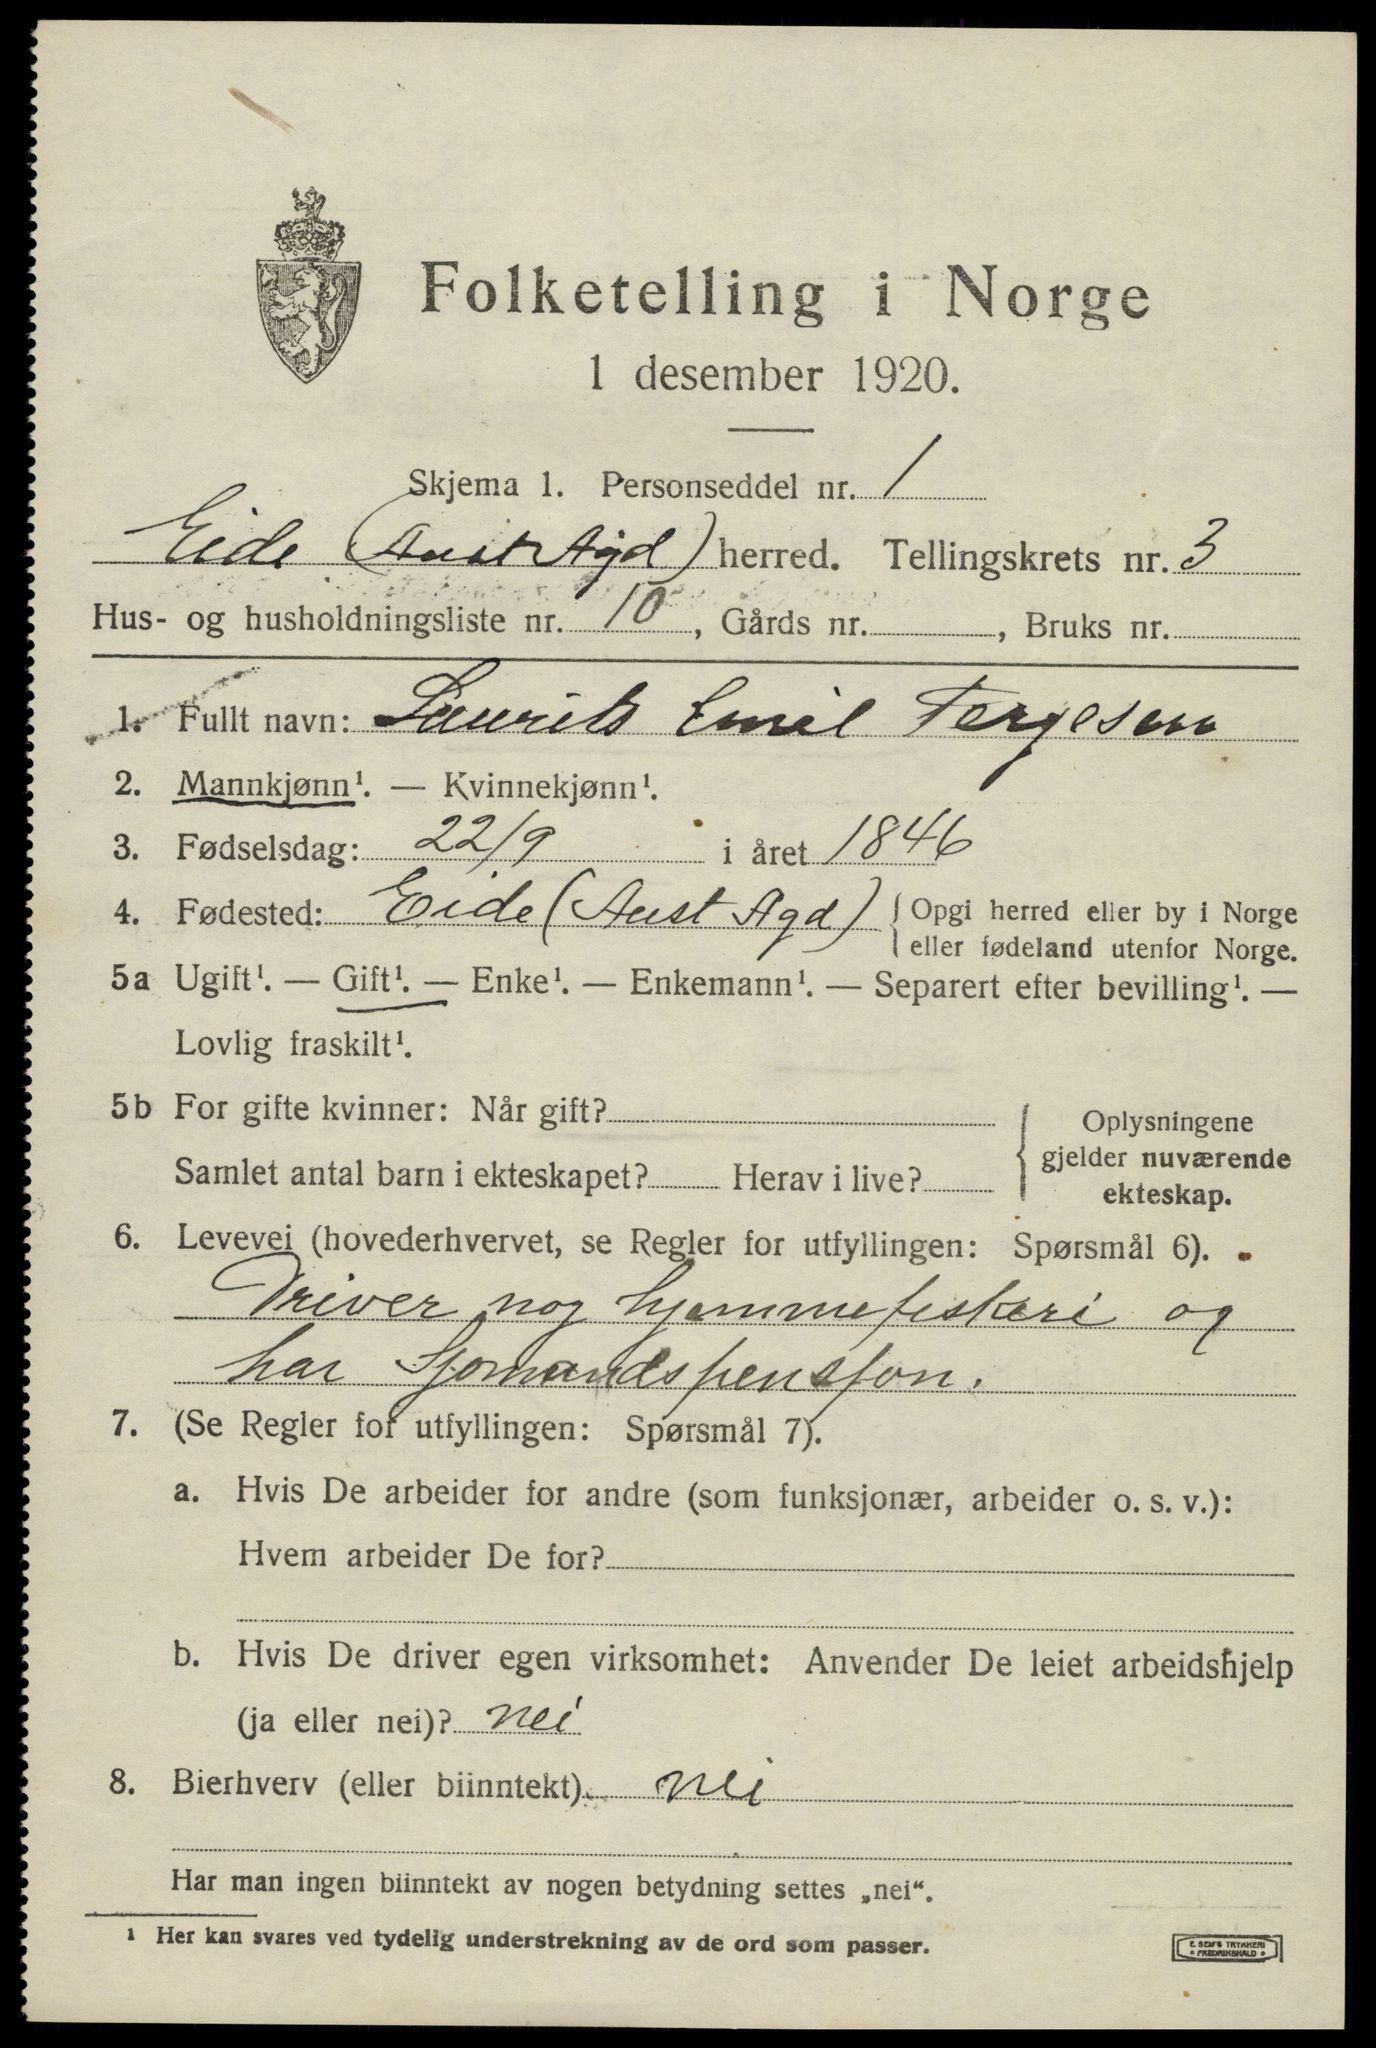 Folketelling i Norge
1 desember 1920.
Skjema 1. Personseddel nr. 1
Eide (Aust Agd) herred. Tellingskrets nr. 3
Hus- og husholdningsliste nr. 10, Gårds nr. , Bruks nr.
1. Fullt navn: Laurits Emil Tergesen
2. Mannkjønn¹. — Kvinnekjønn¹.
3. Fødselsdag: 22/9 i året 1846
4. Fødested: Eide (Aust Agd) { Opgi herred eller by i Norge
eller fødeland utenfor Norge.
5a Ugift¹. — Gift¹. — Enke¹. — Enkemann¹. — Separert efter bevilling¹. —
Lovlig fraskilt¹.
5b For gifte kvinner: Når gift?
Samlet antal barn i ekteskapet? Herav i live?
Oplysningene
gjelder nuværende
ekteskap.
6. Levevei (hovederhvervet, se Regler for utfyllingen: Spørsmål 6).
Driver nog hjemmefiskeri og
har Sjomandspensjon.
7. (Se Regler for utfyllingen: Spørsmål 7).
a. Hvis De arbeider for andre (som funksjonær, arbeider o. s. v.):
Hvem arbeider De for?
b. Hvis De driver egen virksomhet: Anvender De leiet arbeidshjelp
(ja eller nei)? nei
8. Bierhverv (eller biinntekt) nei
Har man ingen biinntekt av nogen betydning settes „nei“.
¹ Her kan svares ved tydelig understrekning av de ord som passer.
E. SEM'S TRYKKERI
• FREDRIKSHALD •